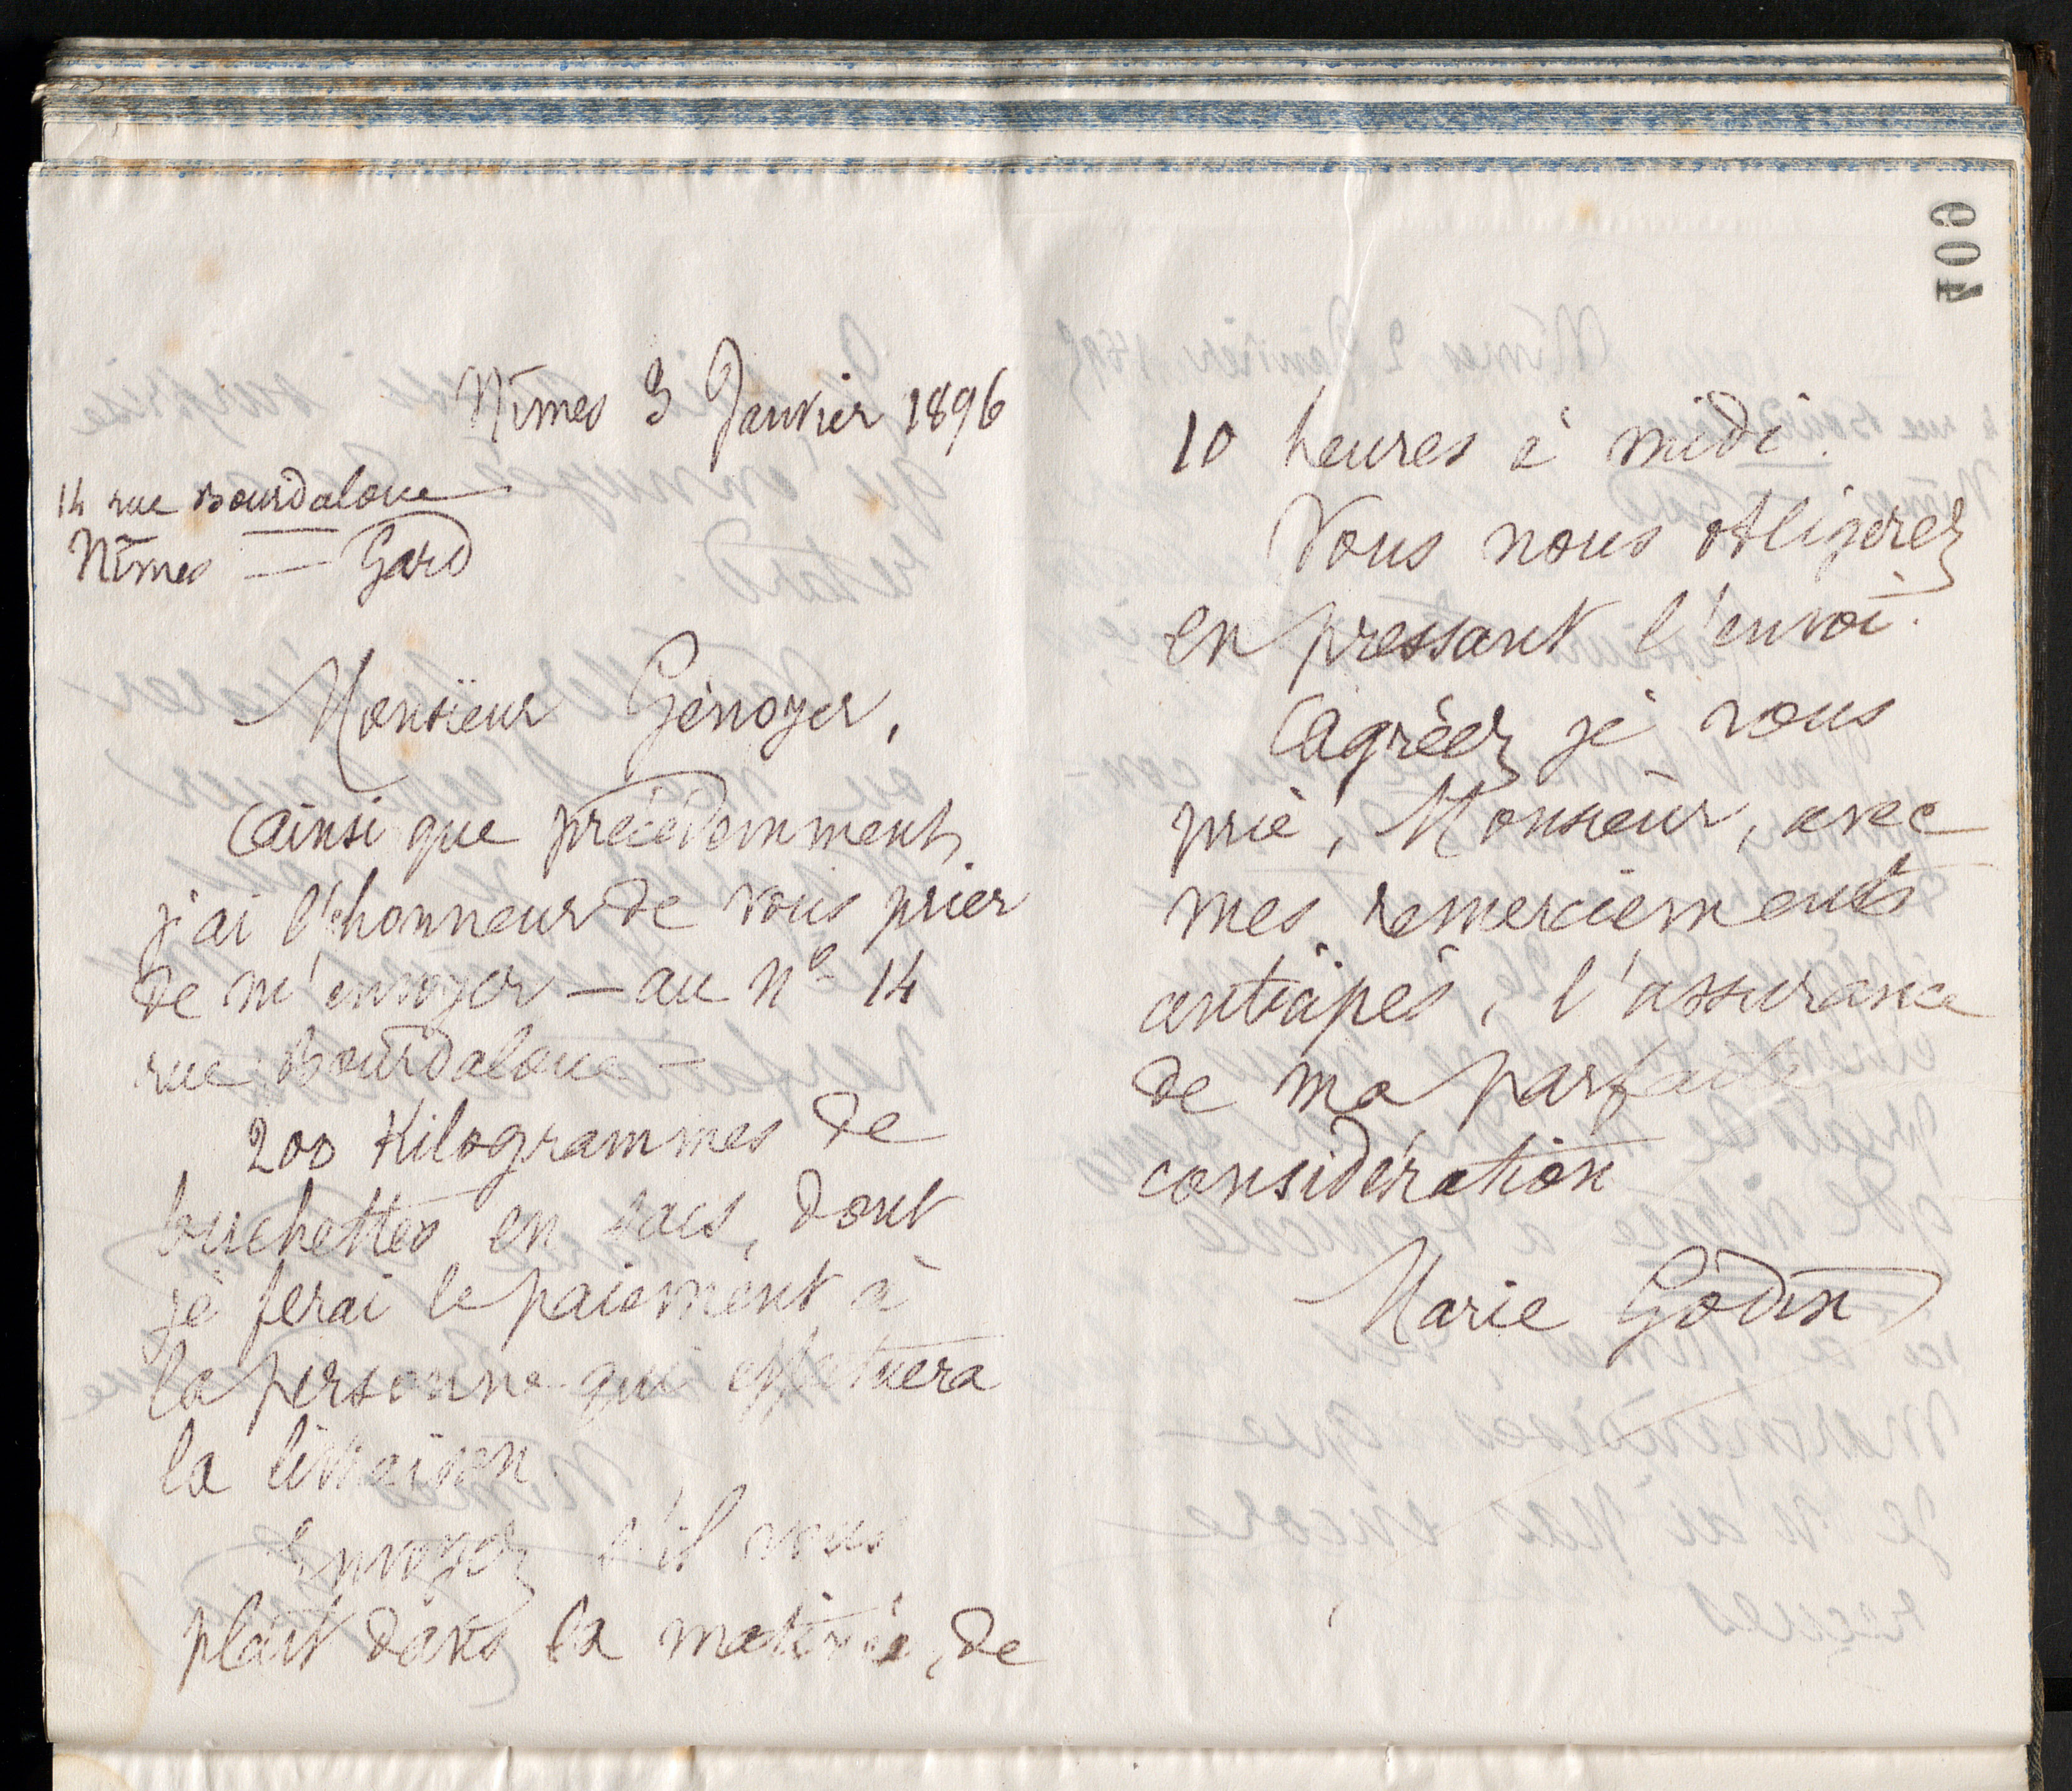 604
Nîmes 3 Janvier 1896
14 rue Bourdaloue
Nîmes — Gard
Monsieur Génoyer,
Ainsi que précédemment,
j'ai l'honneur de vous prier
de m'envoyer — au No 14
rue Bourdaloue —
200 Kilogrammes de
buchettes en sacs, dont
je ferai le paiement à
la personne qui effectuera
la livraison.
Envoyez s'il vous
plaît dans la matinée, de
10 heures à midi.
Vous nous obligerez
en pressant l'envoi.
Agréez je vous
prie, Monsieur, avec
mes remerciements
anticipés, l'assurance
de ma parfaite
considération
Marie Godin